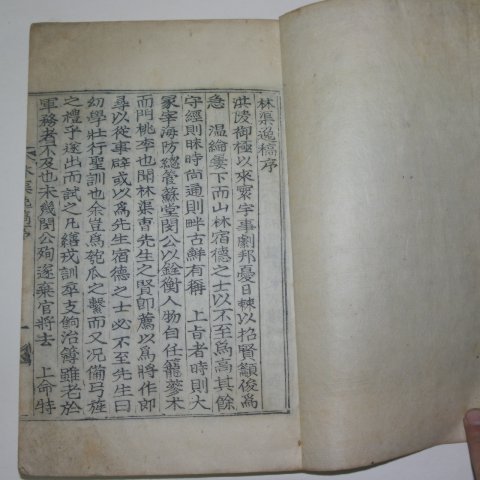 林渠逸稿序
洪陵御極以來寰宇事劇邦憂日棘以招賢籲俊爲
急 温綸屢下而山林宿德之士以不至爲高其餘
守經則昧時尚通則畔古鮮有稱 上旨者時則大
冢宰海防總管蘇堂閔公以銓衡人物自任籠蔘朮
而門桃李也聞林渠曺先生之賢卽薦以爲將作郎
尋以從事辟或以爲先生宿德之士必不至先生曰
幼學壯行聖訓也余豈爲匏瓜之繫而又况備弓旌
之禮乎遂出而試之凡繕戎訓卒支餉治簿雖老於
軍務者不及也未幾閔公殉遂棄官將去 上命特
林渠逸稿序 一